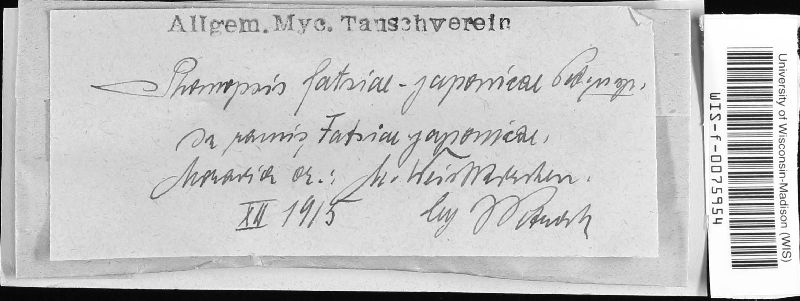 Allgem. Myc. Tauschverein
Phomopsis fatsiae-japonicae
In ramis Fatsiae japonicae.
Moravia or.: M. Weisskirchen.
XII 1915 leg Petrak
University of Wisconsin-Madison (WIS)
WIS-f-0075954